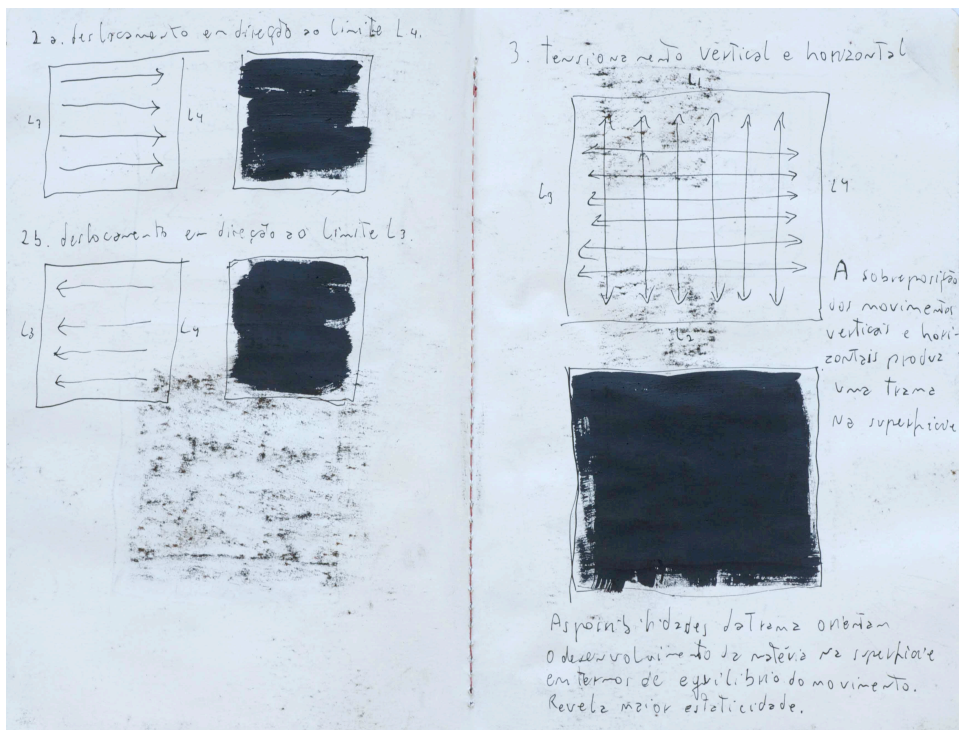 2a. deslocamento em direção ao limite L4.
L3
L4
2b. deslocamento em direção ao limite L3
L3
L4
3. tensionamento vertical e horizontal
L1
L3
L4
L2
A sobreposição
dos movimentos
verticais e hori-
zontais produz
uma trama
na superfície
As possibilidades da trama orientam
o desenvolvimento da matéria na superfície
em termos de equilíbrio do movimento.
Revela maior estaticidade.